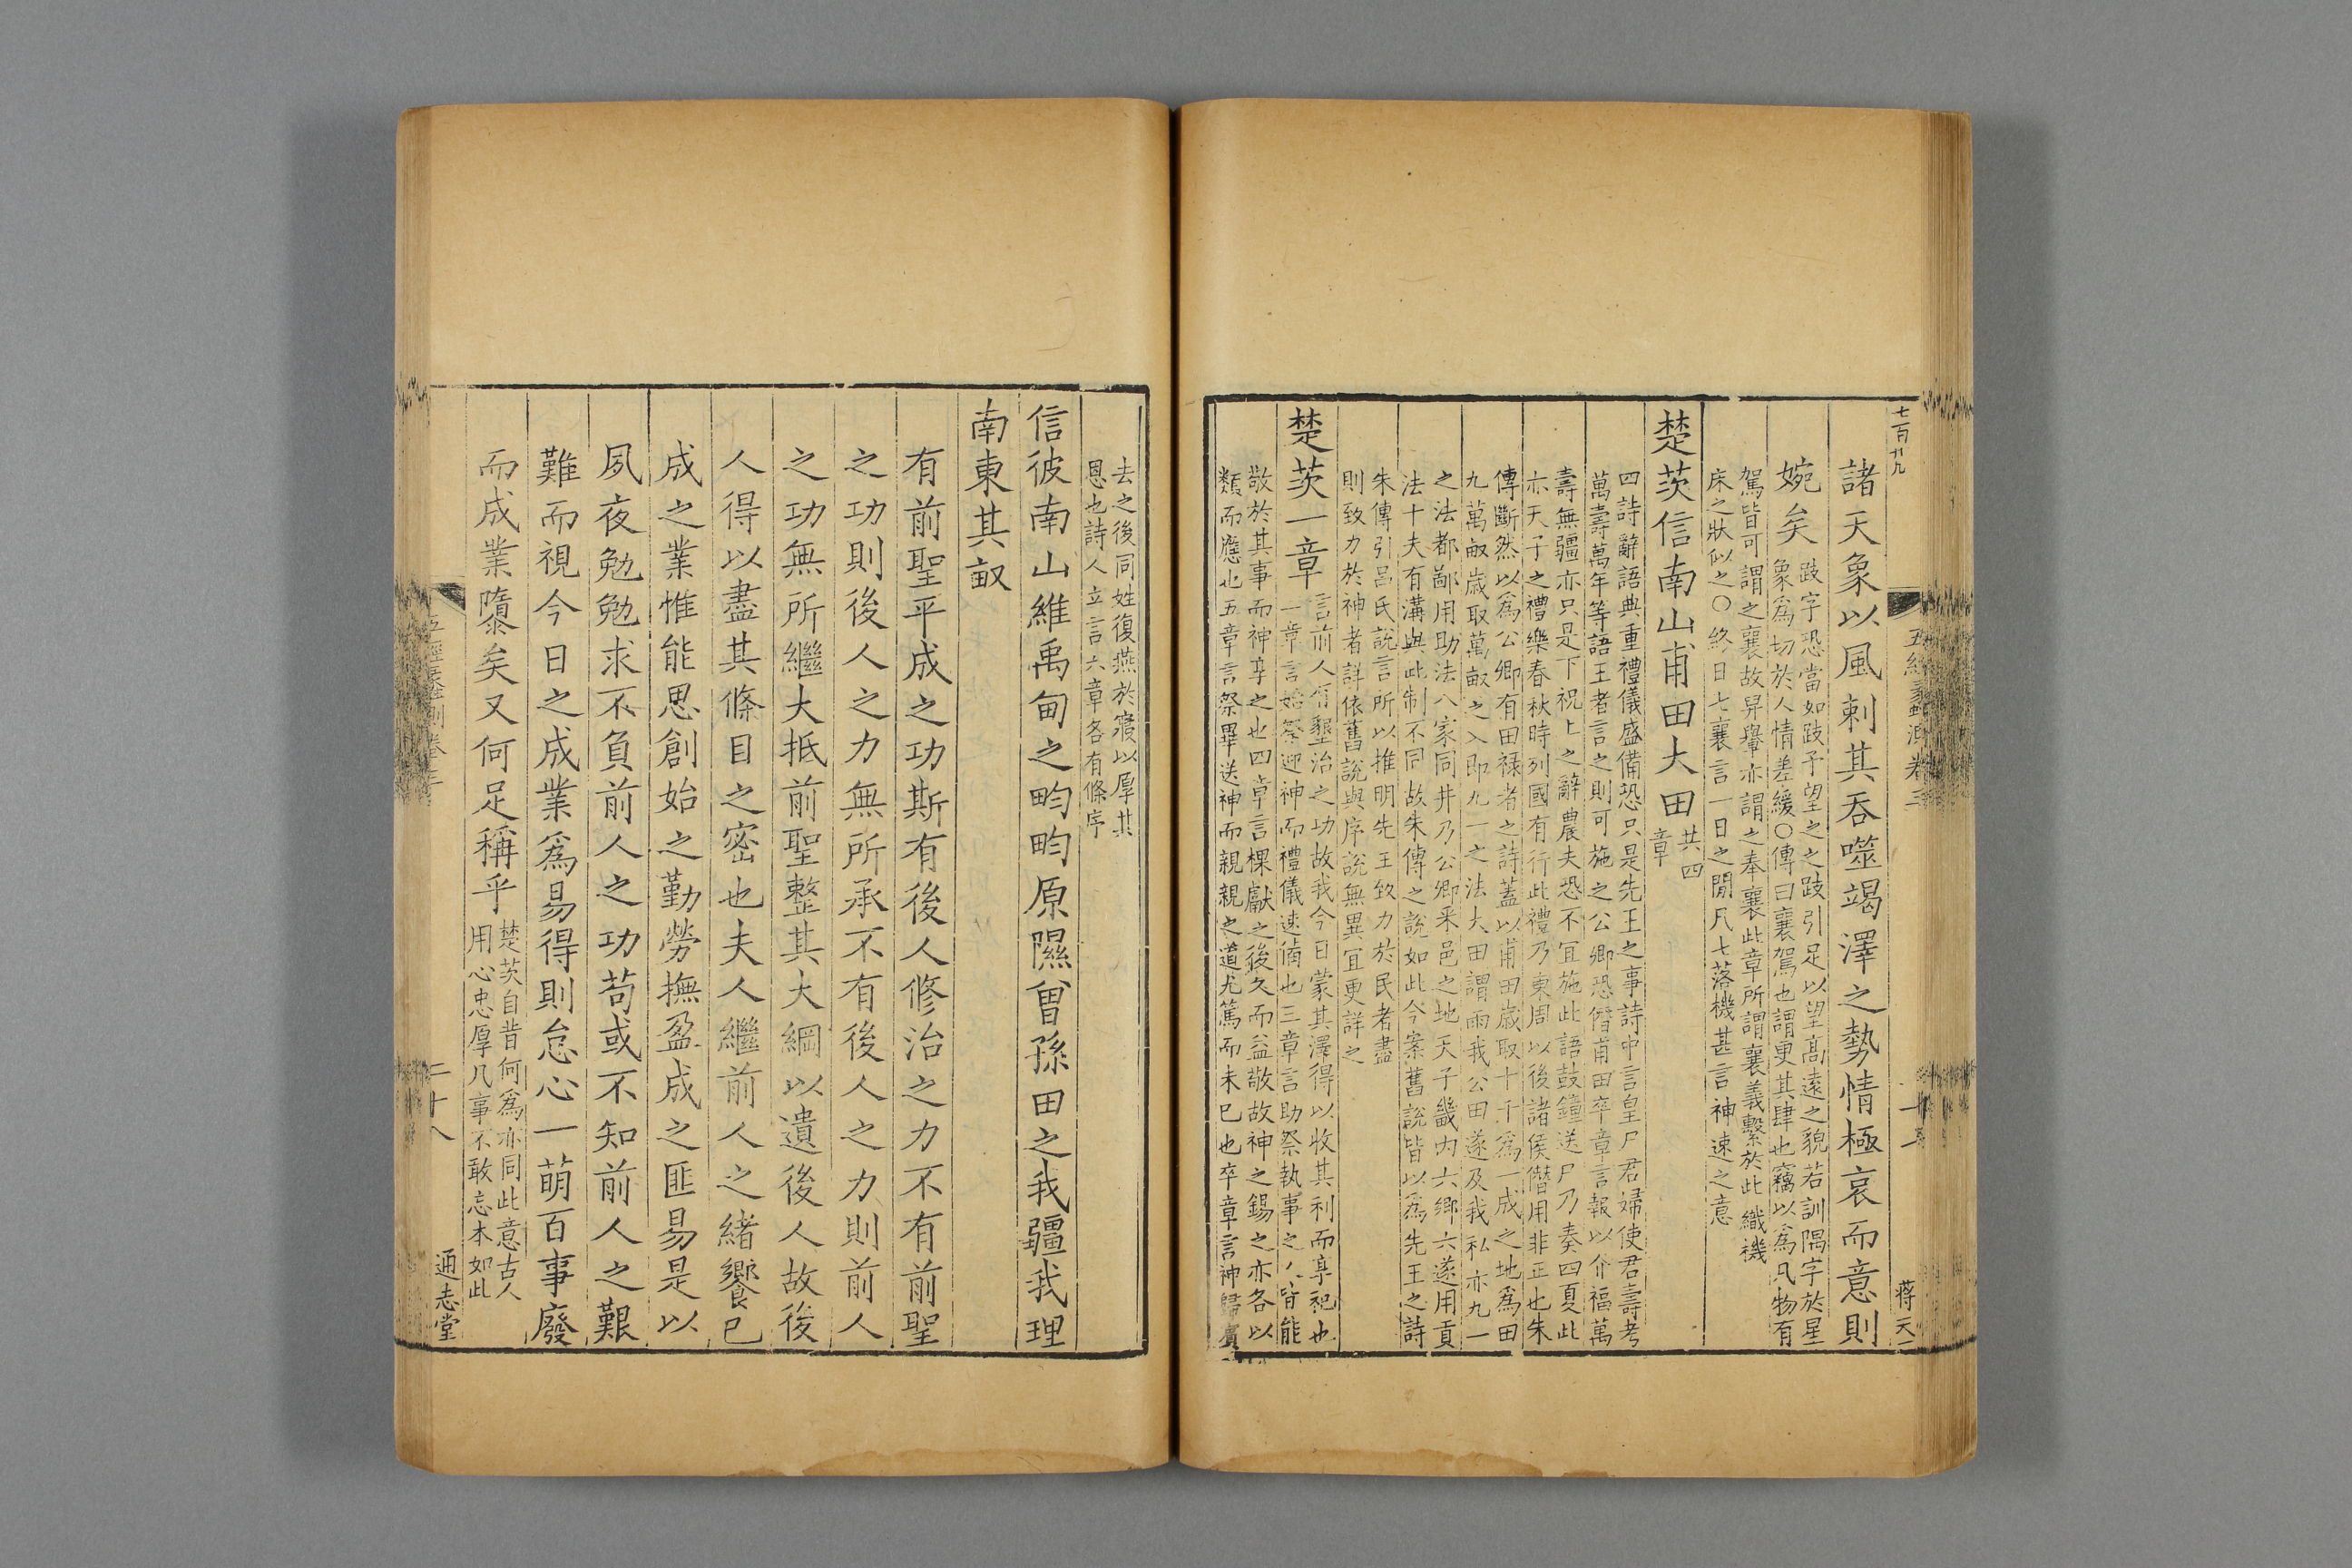 七百廿九
五經蠡測卷三
蔣天一
諸天象以風刺其吞噬竭澤之勢情極哀而意則
婉矣
跂字恐當如跂予望之之跂引足以望高遠之貌若訓隅字於星
象爲切於人情差緩○傳曰襄駕也謂更其肆也竊以爲凡物有
駕皆可謂之襄故昇轝亦謂之奉襄此章所謂襄義繫於此織機
床之狀似之○終日七襄言一日之間凡七落機甚言神速之意
楚茨信南山甫田大田
共四
章
四詩辭語典重禮儀盛備恐只是先王之事詩中言皇尸君婦使君壽考
萬壽萬年等語王者言之則可施之公卿恐僭甫田卒章言報以介福萬
壽無疆亦只是下祝上之辭農夫恐不宜施此語鼓鐘送尸乃奏四夏此
亦天子之禮樂春秋時列國有行此禮乃東周以後諸侯僭用非正也朱
傳斷然以爲公卿有田祿者之詩蓋以甫田歲取十千爲一成之地爲田
九萬畝歲取萬畝之入即九一之法大田謂雨我公田遂及我私亦九一
之法都鄙用助法八家同井乃公卿采邑之地天子畿內六鄉六遂用貢
法十夫有溝與此制不同故朱傳之說如此今案舊說皆以爲先王之詩
朱傳引呂氏說言所以推明先王致力於民者盡
則致力於神者詳依舊說與序說無異宜更詳之
楚茨一章
言前人有墾治之功故我今日蒙其澤得以收其利而享祀也
一章言始祭迎神而禮儀速備也三章言助祭執事之人皆能
敬於其事而神享之也四章言祼獻之後久而益敬故神之錫之亦各以
類而應也五章言祭畢送神而親親之道尤篤而未已也卒章言神歸賓
去之後同姓復燕於寢以厚其
恩也詩人立言六章各有條序
信彼南山維禹甸之畇畇原隰曾孫田之我疆我理
南東其畝
有前聖平成之功斯有後人修治之力不有前聖
之功則後人之力無所承不有後人之力則前人
之功無所繼大抵前聖整其大綱以遺後人故後
人得以盡其條目之密也夫人繼前人之緒饗已
成之業惟能思創始之勤勞撫盈成之匪易是以
夙夜勉勉求不負前人之功苟或不知前人之艱
難而視今日之成業爲易得則怠心一萌百事廢
而成業隳矣又何足稱乎
楚茨自昔何爲亦同此意古人
用心忠厚凡事不敢忘本如此
五經蠡測卷三
二十八
通志堂